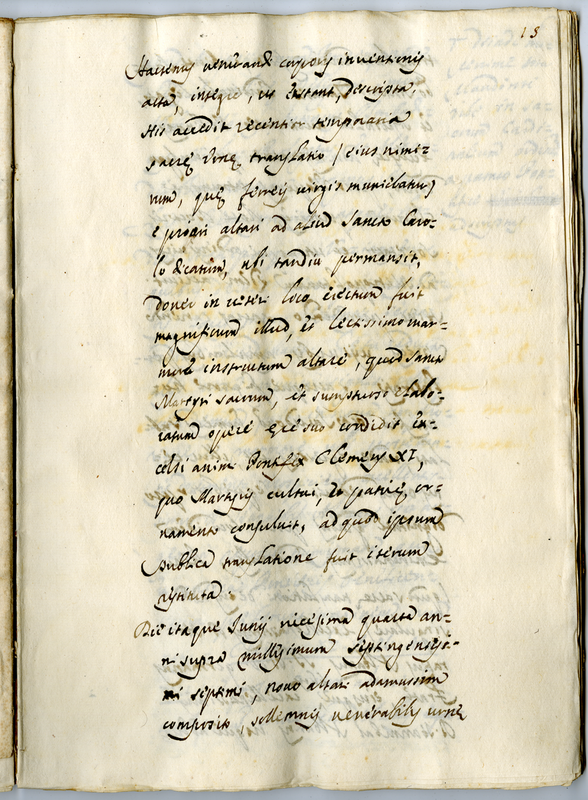 15
Hactenus venerandi corporis inventionis
acta, integre, ut extant, descripta.
His accedit recentior temporaria
sacrę Urnę translatio / eius nimi=
rum, quę ferreis virgis muniebatur /
e priori altari ad aliud Sancto Caro=
lo dicatum, ubi tandiu permansit,
donec in veteri loco erectum fuit
magnificum illud, et lectissimo mar=
more instructum altare, quod Sancto
Martyri sacrum, et sumptuoso elabo=
ratum opere ęre suo condidit ex=
celsi animi Pontifex Clemens XI,
quo Martyris cultui, et patrię or=
namento consuluit, ad quod ipsum
publica translatione fuit iterum
restituta.
Die itaque Junij vicesima quarta an=
ni supra millesimum septingentesi=
mi septimi, novo altari adamussim
composito, sollemnis venerabilis urnę